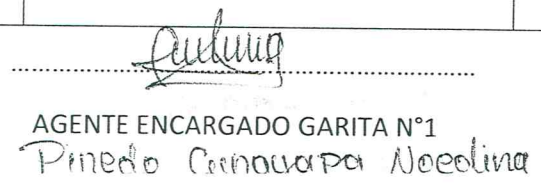 AGENTE ENCARGADO GARITA N°1
Pinedo Noeolina